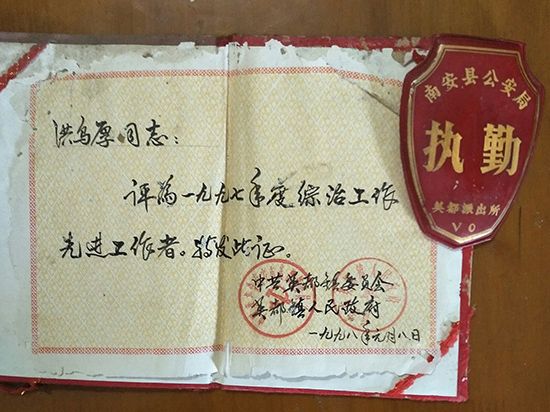 洪鸟厚同志：
评为一九九七年度综治工作
先进工作者。特发此证。
中共英都镇委员会
英都镇人民政府
一九九八年元月八日
南安县公安局
执勤
英都派出所
VO